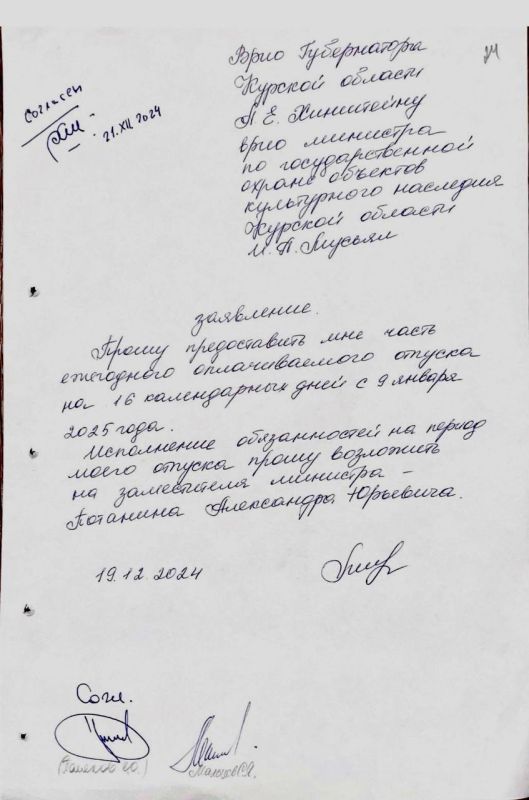 Врио Губернатора
Курской области
А.Е. Хинштейну
врио министра
по государственной
охране объектов
культурного наследия
Курской области
И.П. Мусьял
Согласен
21.XII.2024
заявление.
Прошу предоставить мне часть
ежегодного оплачиваемого отпуска
на 16 календарных дней с 9 января
2025 года.
Исполнение обязанностей на период
моего отпуска прошу возложить
на заместителя министра –
Потанина Александра Юрьевича.
19.12.2024
Согл.